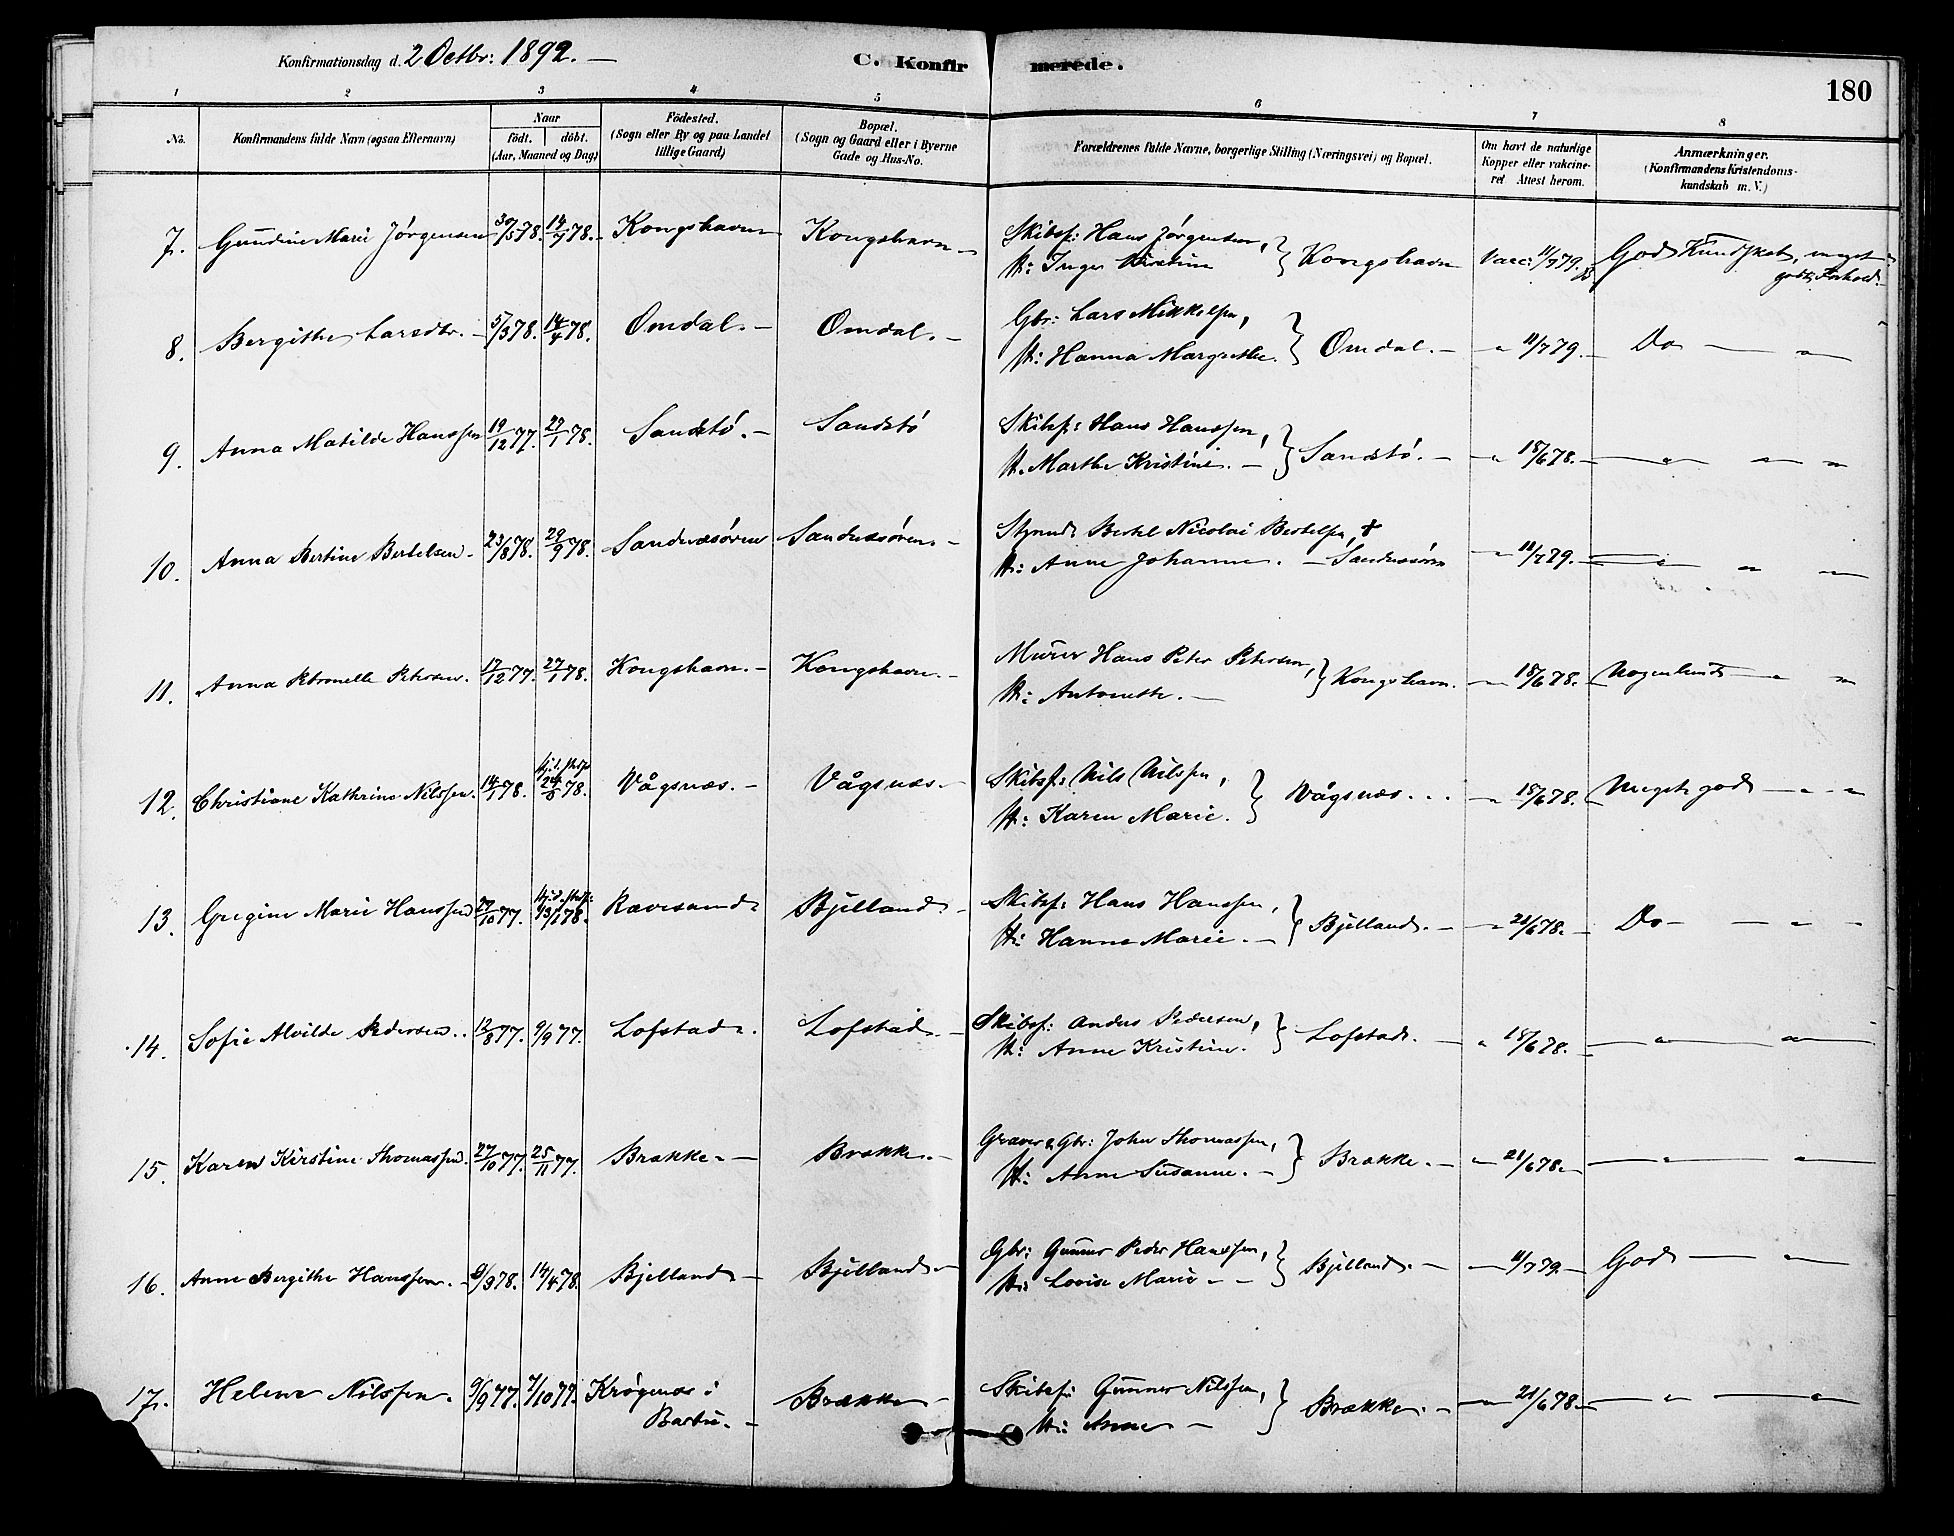 Konfirmationsdag d. 2 Octbr: 1892. —
C. Konfirmerede.
180
1 2 3 4 5 6 7 8
No.
Konfirmandens fulde Navn (ogsaa Efternavn)
Naar
födt. döbt.
(Aar, Maaned og Dag)
Födested.
(Sogn eller By og paa Landet
tillige Gaard)
Bopæl.
(Sogn og Gaard eller i Byerne
Gade og Hus-No.
Forældrenes fulde Navne, borgerlige Stilling (Næringsvei) og Bopæl.
Om havt de naturlige
Kopper eller vakcine-
ret Attest herom.
Anmærkninger.
(Konfirmandens Kristendoms-
kundskab m. V.)
7. Gundine Marie Jörgensen 30/5 78. 14/7 78. Kongshavn Kongshavn — Skibsf: Hans Jörgensen, } Kongshavn Vacc: 11/7 79. God Kundskab, meget
H: Inger Kirstine godt Forhold.
8. Bergithe Larsdtr. — 5/3 78. 14/4 78. Omdal. — Omdal. — Gbr: Lars Mikkelsen, } Omdal. — " 11/7 79. — Do — "
H: Hanna Margrethe.
9. Anna Matilde Hanssen 19/12 77. 27/1 78. Sandstö. — Sandstö Skibsf: Hans Hanssen, } Sandstö. — " 18/6 78. — " " "
H. Marthe Kristine. —
10. Anna Bertine Bertelsen. 23/8 78. 29/9 78. Sandnæsören Sandnæsören. — Styrmd. Bertel Nicolai Bertelsen, †
H: Anne Johanne. — Sandnæsören — " 11/7 79. — " " "
11. Anna Petronelle Petersen. 17/12 77. 27/1 78. Kongshavn. — Kongshavn. — Murer Hans Peter Petersen, } Kongshavn. — " 18/6 78. — Nogenlunde — " "
H: Antonette. —
12. Christiane Kathrine Nilssen. 14/1 78. 24/3 78. Vågsnæs. — Vågsnæs. — Skibsf: Nils Nilssen, } Vågsnæs . . . — " 18/6 78. Meget god — " "
H: Karen Marie.
13. Gregine Marie Hanssen 27/10 77. 13/1 78. Ravesand. Bjelland. — Skibsf: Hans Hanssen, } Bjelland. — " 21/6 78. — Do — " "
H: Hanna Marie. —
14. Sofie Alvilde Pedersen. 12/8 77. 9/9 77. Lofstad. Lofstad. — Skibsf: Anders Pedersen, } Lofstad. — " 18/6 78. — " "
H: Anne Kristine.
15. Karen Kirstine Thomassen. 27/10 77. 25/11 77. Brække. — Brække. — Graver & Gbr: John Thomassen, } Brække. — " 21/6 78. — " "
H: Anne Susanne. —
16. Anne Bergithe Hanssen. — 2/3 78. 14/4 78. Bjelland. — Bjelland. — Gbr: Gunner Peder Hanssen, } Bjelland. — " 11/7 79. — God — "
H: Lovise Marie — —
17. Helene Nilssen. 9/9 77. 7/10 77. Krögenæs i Brække — Skibsf: Gunner Nilssen, } Brække. — " 21/6 78. — " "
Barbu. — H: Anne —